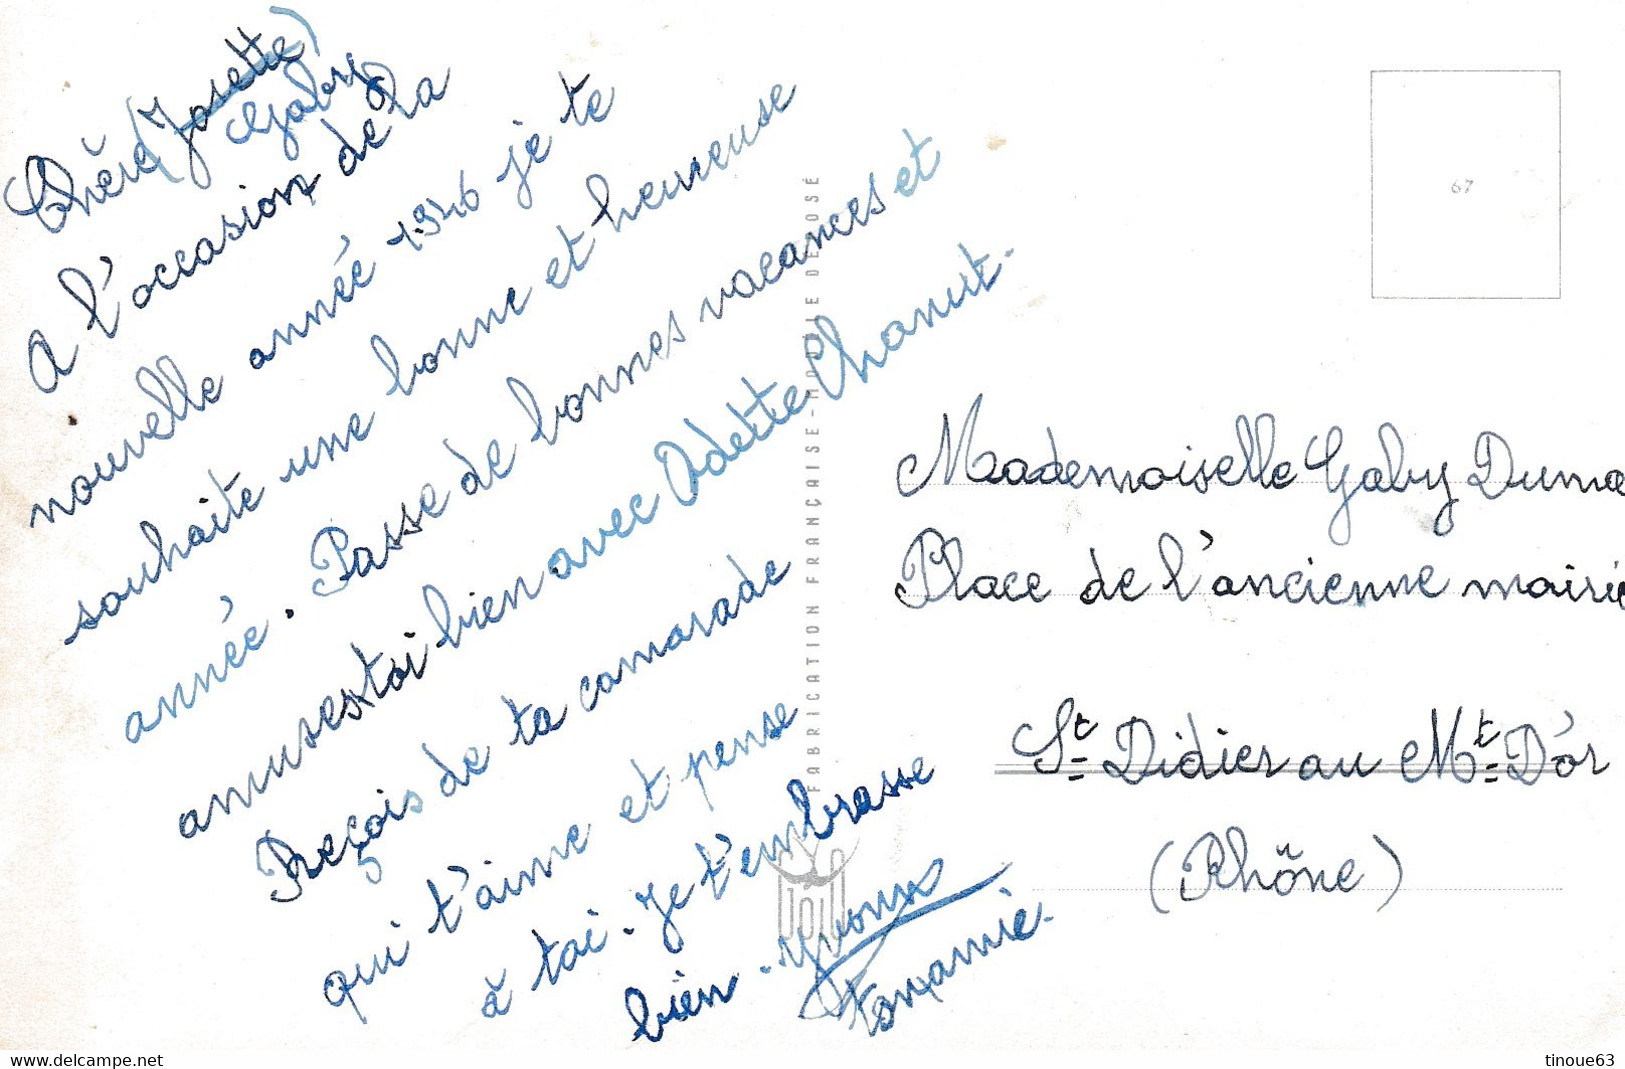 Chère (Josette)
Gaby
A l'occasion de la
nouvelle année 1946 je te
souhaite une bonne et heureuse
année. Passe de bonnes vacances et
amuses toi bien avec Odette Chanut.
Reçois de ta camarade
qui t'aime et pense
à toi. Je t'embrasse
bien. Yvonne
FABRICATION FRANÇAISE - MODÈLE DÉPOSÉ
67
Mademoiselle Gaby Duma
Place de l'ancienne mairie
St Didier au Mt D'or
(Rhône)
tinoue63
www.delcampe.net